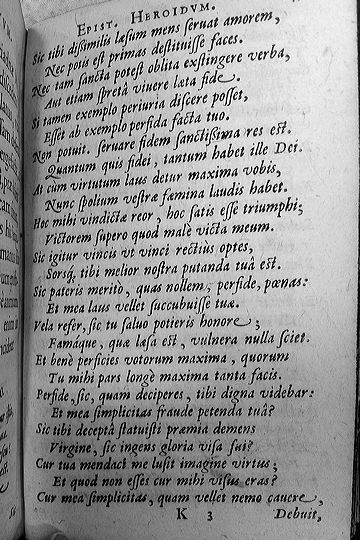 EPIST. HEROIDVM.
Sic tibi dissimilis læsum mens seruat amorem,
Nec potis est primas destituisse faces.
Nec tam sancta potest oblita exstingere verba,
Aut etiam spretâ viuere læta fide.
Si tamen exemplo periuria discere posset,
Esset ab exemplo perfida facta tuo.
Non potuit. seruare fidem sanctissima res est.
Quantum quis fidei, tantum habet ille Dei.
At cùm virtutum laus detur maxima vobis,
Nunc spolium vestræ fæmina laudis habet.
Hoc mihi vindictæ reor, hoc satis esse triumphi;
Victorem supero quod malè victa meum.
Sic igitur vincis vt vinci rectiùs optes,
Sorsq́; tibi melior nostra putanda tuâ est.
Sic pateris meritò, quas nollem, perfide, pœnas:
Et mea laus vellet succubuisse tuæ.
Vela refer, sic tu saluo potieris honore;
Famáque, quæ læsa est, vulnera nulla sciet.
Et benè perficies votorum maxima, quorum
Tu mihi pars longè maxima tanta facis.
Perfide, sic, quam deciperes, tibi digna videbar:
Et mea simplicitas fraude petenda tuâ?
Sic tibi deceptâ statuisti præmia demens
Virgine, sic ingens gloria visa fui?
Cur tua mendaci me lusit imagine virtus;
Et quod non esses cur mihi visus eras?
Cur mea simplicitas, quam vellet nemo cauere,
K 3 Debuit,